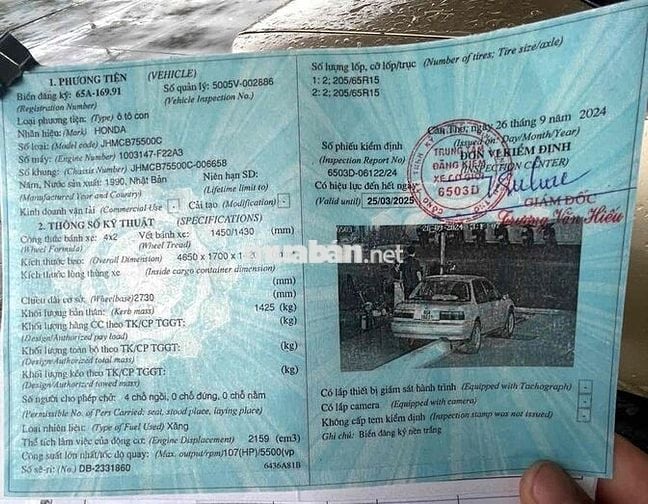 1. PHƯƠNG TIỆN (VEHICLE)
Biển đăng ký: 65A-169.91 Số quản lý: 5005V-002886
(Registration Number) (Vehicle Inspection No.)
Loại phương tiện: (Type) ô tô con
Nhãn hiệu: (Mark) HONDA
Số loại: (Model code) JHMCB75500C
Số máy: (Engine Number) 1003147-F22A3
Số khung: (Chassis Number) JHMCB75500C-006658
Năm, Nước sản xuất: 1990, Nhật Bản Niên hạn SD:
(Manufactured Year and Country) (Lifetime limit to)
Kinh doanh vận tải (Commercial Use) - Cải tạo (Modification) -
2. THÔNG SỐ KỸ THUẬT (SPECIFICATIONS)
Công thức bánh xe: 4x2 Vết bánh xe: 1450/1430
(Wheel Formula) (Wheel Tread) (mm)
Kích thước bao: (Overall Dimension) 4650 x 1700 x
Kích thước lòng thùng xe (Inside cargo container dimension)
(mm)
Chiều dài cơ sở: (Wheelbase) 2730 (mm)
Khối lượng bản thân: (Kerb mass) 1425 (kg)
Khối lượng hàng CC theo TK/CP TGGT: (kg)
(Design/Authorized pay load)
Khối lượng toàn bộ theo TK/CP TGGT: (kg)
(Design/Authorized total mass)
Khối lượng kéo theo TK/CP TGGT: (kg)
(Design/Authorized towed mass)
Số người cho phép chở: 4 chỗ ngồi, 0 chỗ đứng, 0 chỗ nằm
(Permissible No. of Pers Carried: seat, stood place, laying place)
Loại nhiên liệu: (Type of Fuel Used) Xăng
Thể tích làm việc của động cơ: (Engine Displacement) 2159 (cm3)
Công suất lớn nhất/tốc độ quay: (Max. output/rpm) 107(HP)/5500(vp
Số sê-ri: (No.) DB-2331860 6436A81B
Số lượng lốp, cỡ lốp/trục (Number of tires; Tire size/axle)
1: 2; 205/65R15
2: 2; 205/65R15
Cần Thơ, ngày 26 tháng 9 năm 2024
(Issued on: Day/Month/Year)
Số phiếu kiểm định ĐƠN VỊ KIỂM ĐỊNH
(Inspection Report No) (INSPECTION CENTER)
6503D-06122/24
Có hiệu lực đến hết ngày
(Valid until) 25/03/2025
TRUNG TÂM
ĐĂNG KIỂM
XE CƠ GIỚI
6503D
GIÁM ĐỐC
Trương Văn Hiếu
muaban.net
Có lắp thiết bị giám sát hành trình (Equipped with Tachograph) -
Có lắp camera (Equipped with camera) -
Không cấp tem kiểm định (Inspection stamp was not issued) -
Ghi chú: Biển đăng ký nền trắng